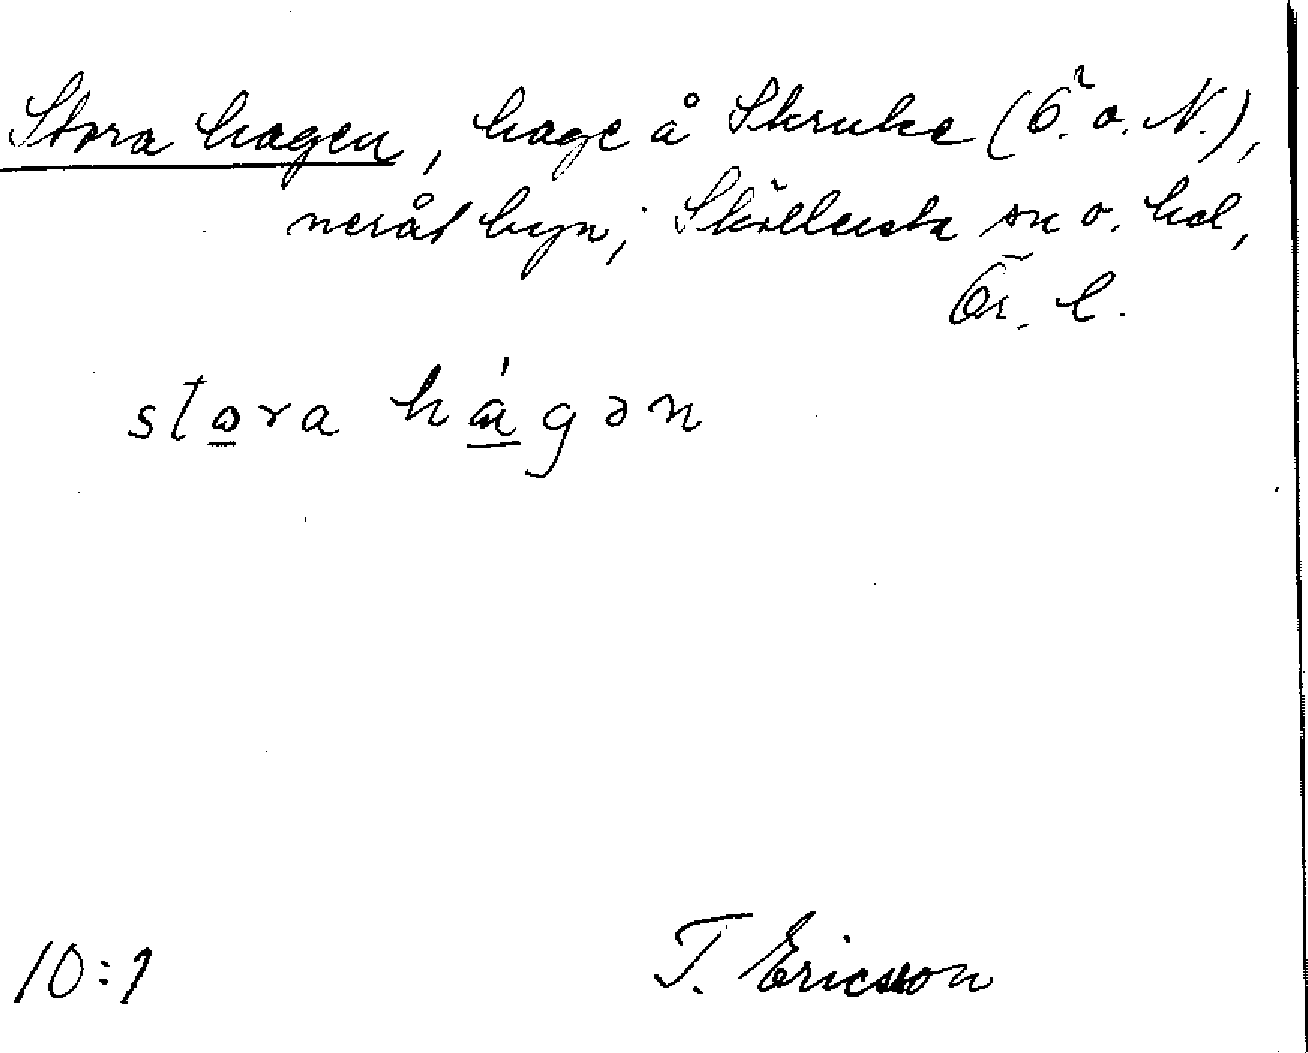 Stora hagen, hage å Skruke (Ö. o. N.),
neråt byn; Sköllersta sn o. hd,
Ör. l.
stora hágən
10:1
T. Ericsson